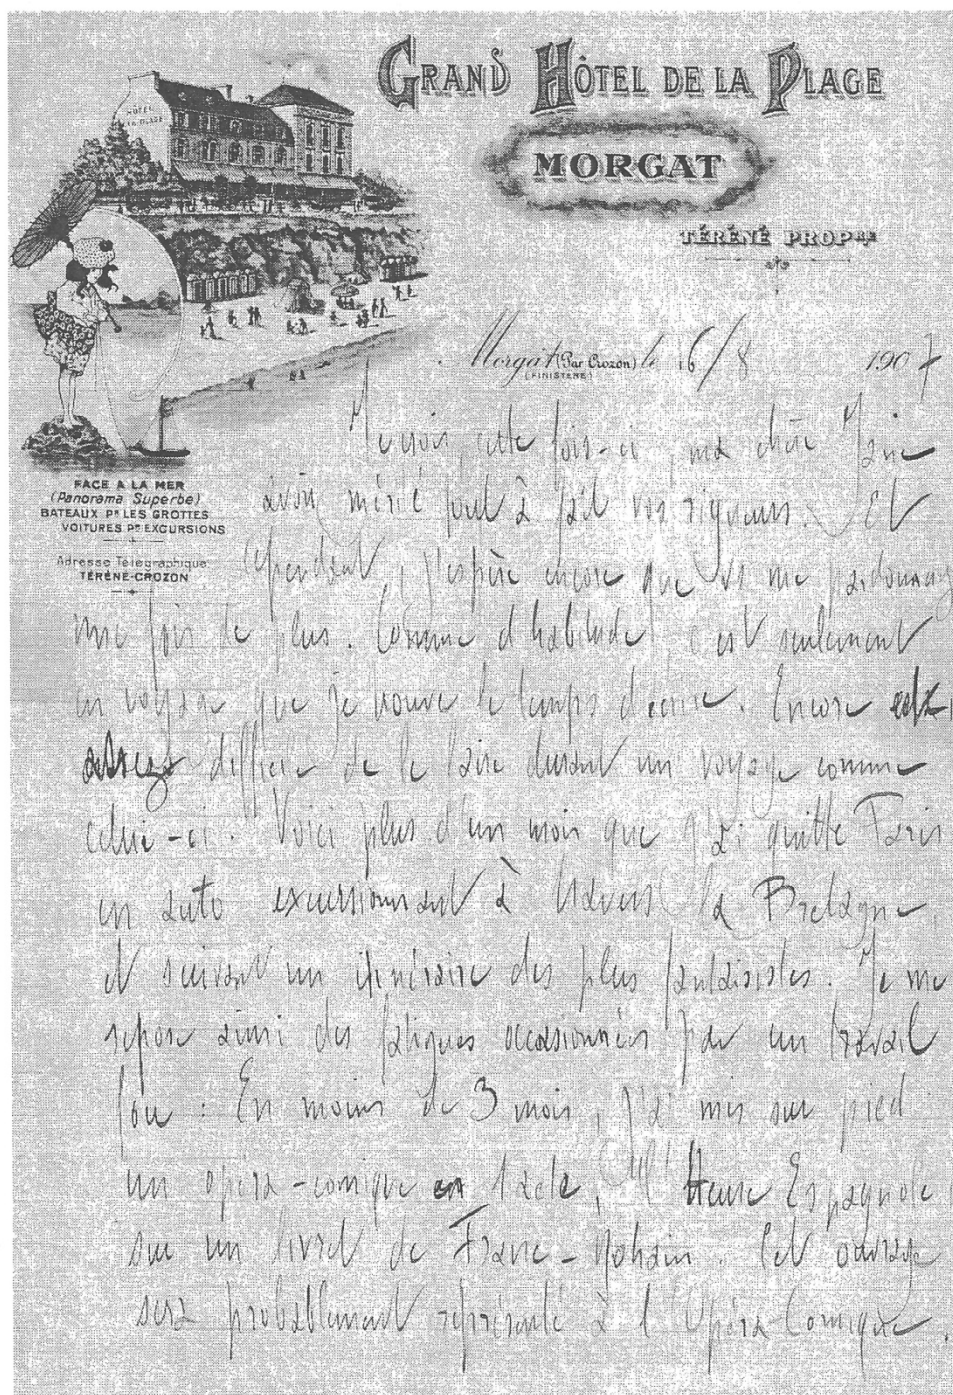 GRAND HÔTEL DE LA PLAGE
MORGAT
TÉRÉNÉ PROPRE
HÔTEL
DE LA PLAGE
Morgat (Par Crozon) le 16/8 1907
(FINISTÈRE)
FACE A LA MER
(Panorama Superbe)
BATEAUX Pr LES GROTTES
VOITURES Pr EXCURSIONS
Adresse Télégraphique
TÉRÉNÉ-CROZON
Je crois, cette fois-ci, ma chère Jane
avoir mérité tout à fait vos rigueurs. Et
cependant, j'espère encore que vs me pardonnerez
une fois de plus. Comme d'habitude, c'est seulement
en voyage que je trouve le temps d'écrire. Encore
assez difficile de le faire durant un voyage comme
celui-ci. Voici plus d'un mois que j'ai quitté Paris
en auto excursionnant à travers la Bretagne,
et suivant un itinéraire des plus fantaisistes. Je me
repose ainsi des fatigues occasionnées par un travail
fou : En moins de 3 mois, j'ai mis sur pied
un opéra-comique en 1 acte, l'Heure Espagnole,
sur un livret de Franc-Nohain. Cet ouvrage
sera probablement représenté à l'Opéra-Comique.